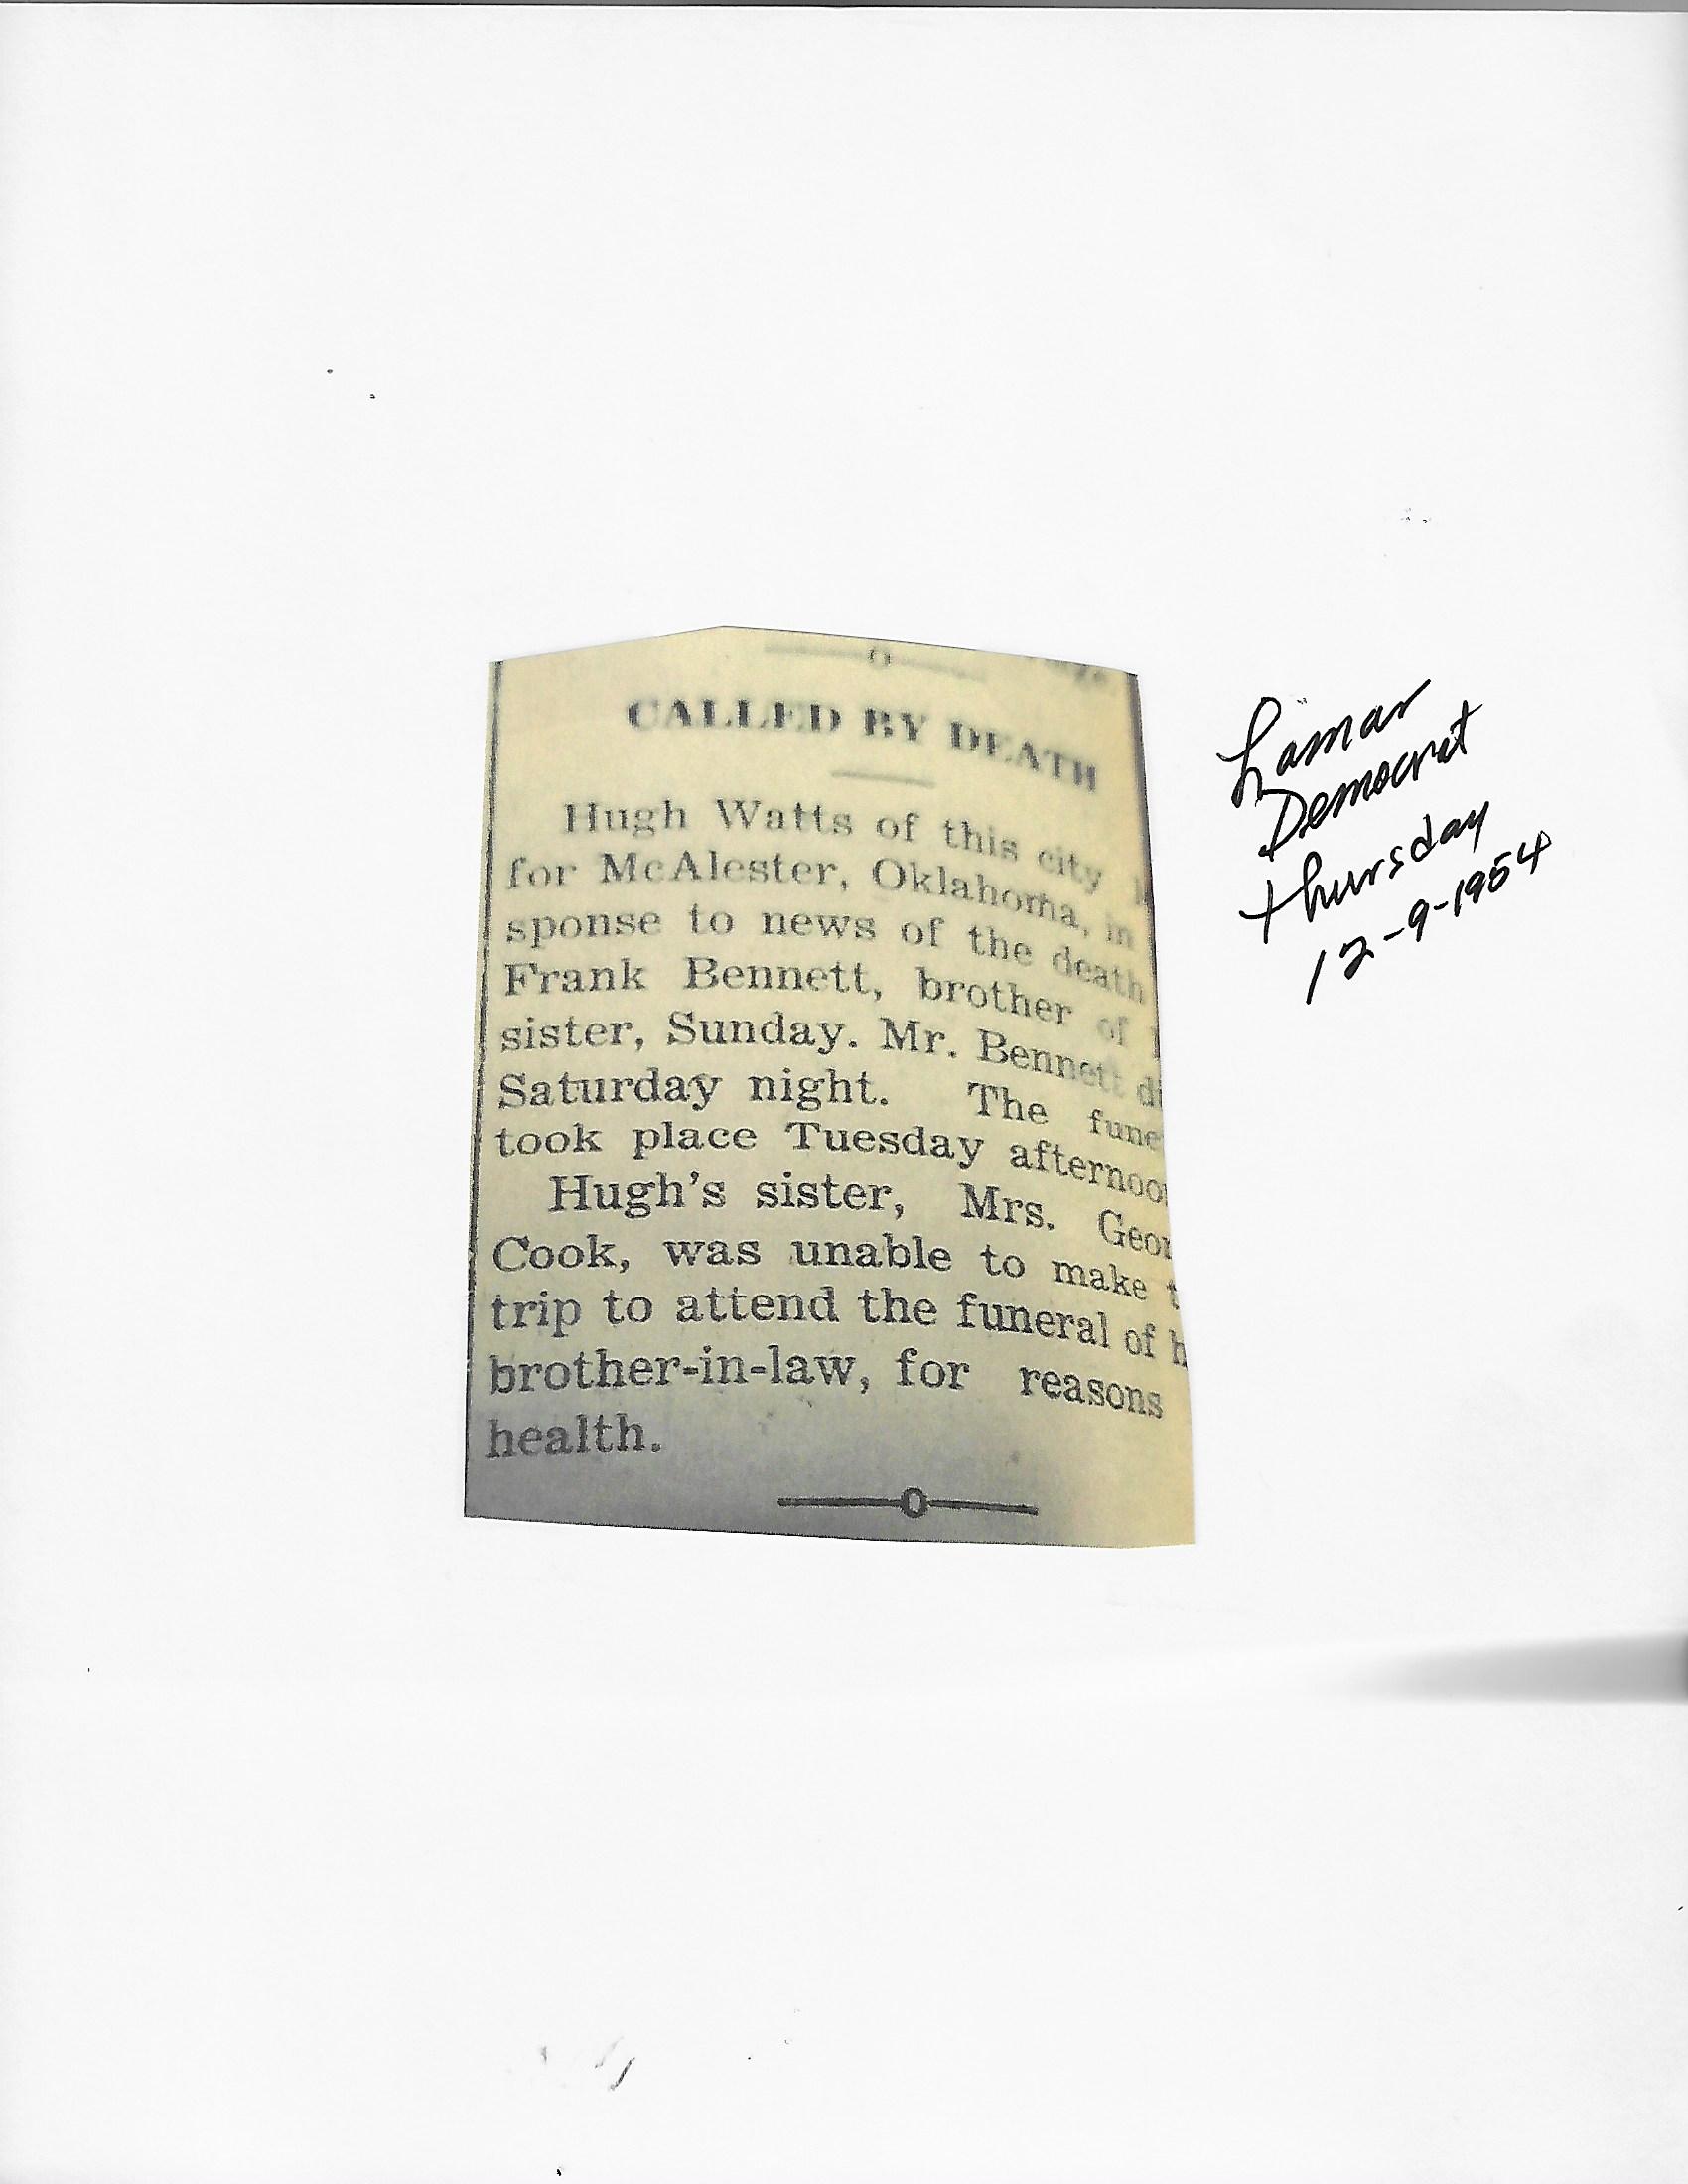 CALLED BY DEATH
Hugh Watts of this city
for McAlester, Oklahoma, in
sponse to news of the death
Frank Bennett, brother of
sister, Sunday. Mr. Bennett di
Saturday night. The fune
took place Tuesday afternoo
Hugh's sister, Mrs. Geor
Cook, was unable to make t
trip to attend the funeral of h
brother-in-law, for reasons
health.
Lamar
Democrat
Thursday
12-9-1954